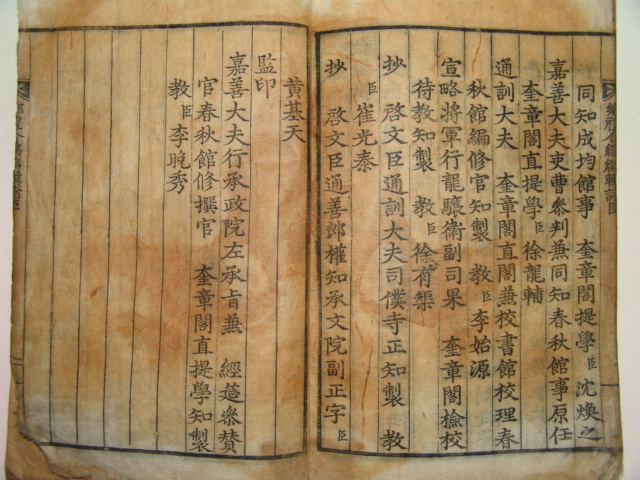 同知成均館事 奎章閣提學臣沈煥之
嘉善大夫吏曹參判兼同知春秋館事原任
奎章閣直提學臣徐龍輔
通訓大夫 奎章閣直閣兼校書館校理春
秋館編修官知製 教臣李始源
宣略將軍行龍驤衛副司果 奎章閣檢校
待教知製 教臣徐有榘
抄 啓文臣通訓大夫司僕寺正知製 教
臣崔光泰
抄 啓文臣通善郎權知承文院副正字臣
黃基天
監印
嘉善大夫行承政院左承旨兼 經筵參贊
官春秋館修撰官 奎章閣直提學知製
教臣李晚秀